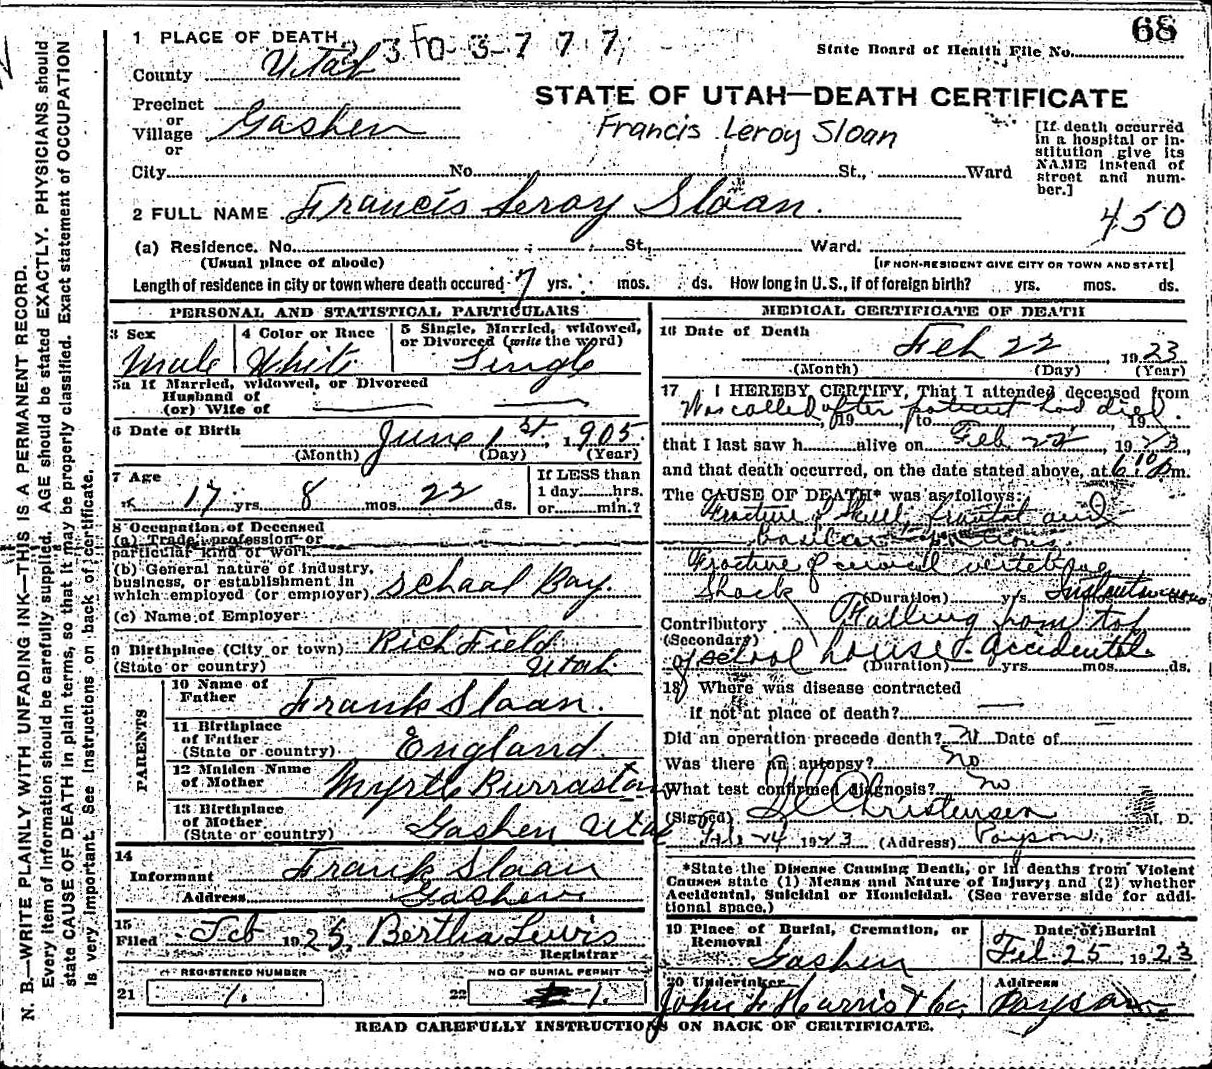 68
1 PLACE OF DEATH
State Board of Health File No.
County Utah
STATE OF UTAH—DEATH CERTIFICATE
Precinct
or
Village Goshen
or
Francis Leroy Sloan
[If death occurred
in a hospital or in-
stitution give its
NAME instead of
street and num-
ber.]
City No. St., Ward
2 FULL NAME Francis Leroy Sloan.
450
(a) Residence. No. St., Ward.
(Usual place of abode) [IF NON-RESIDENT GIVE CITY OR TOWN AND STATE]
Length of residence in city or town where death occured 7 yrs. mos. ds. How long in U.S., if of foreign birth? yrs. mos. ds.
PERSONAL AND STATISTICAL PARTICULARS
3 Sex 4 Color or Race 5 Single, Married, widowed,
or Divorced (write the word)
Male White Single
5a If Married, widowed, or Divorced
Husband of
(or) Wife of
6 Date of Birth June 1st, 1905
(Month) (Day) (Year)
7 Age If LESS than
17 yrs 8 mos 22 ds. 1 day hrs.
or min.?
8 Occupation of Deceased
(a) Trade, profession or
particular kind of work
(b) General nature of industry,
business, or establishment in
which employed (or employer) School Boy.
(c) Name of Employer
9 Birthplace (City or town) Richfield
(State or country) Utah
PARENTS
10 Name of
Father Frank Sloan.
11 Birthplace
of Father
(State or country) England
12 Maiden Name
of Mother Myrtle Burraston
13 Birthplace
of Mother
(State or country) Goshen Utah
14
Informant Frank Sloan
Address Goshen
15
Filed Feb 1925, Bertha Lewis
Registrar
REGISTERED NUMBER NO OF BURIAL PERMIT
21 1. 22 1.
MEDICAL CERTIFICATE OF DEATH
16 Date of Death Feb 22, 1923
(Month) (Day) (Year)
17 I HEREBY CERTIFY, That I attended deceased from
Was called after patient had died.
, 19 , to , 19
that I last saw h alive on Feb 22 1923
and that death occurred, on the date stated above, at 6:10 P m.
The CAUSE OF DEATH* was as follows:
Fracture of Skull, frontal and
basilar portions.
Fracture of cervical vertebrae
Shock (Duration) yrs mos ds Instantaneous
Contributory Falling from top
(Secondary)
of school house. Accidental
(Duration) yrs mos ds.
18 Where was disease contracted
if not at place of death?
Did an operation precede death? Date of
Was there an autopsy? No
What test confirmed diagnosis? No
(Signed) Christensen M. D.
24 1923 (Address) Payson.
*State the Disease Causing Death, or in deaths from Violent
Causes state (1) Means and Nature of Injury; and (2) whether
Accidental, Suicidal or Homicidal. (See reverse side for addi-
tional space.)
19 Place of Burial, Cremation, or
Removal Goshen
Date of Burial
Feb 25 1923
20 Undertaker
John F Harris & Co.
Address
Payson
READ CAREFULLY INSTRUCTIONS ON BACK OF CERTIFICATE.
N. B.—WRITE PLAINLY WITH UNFADING INK—THIS IS A PERMANENT RECORD.
Every item of information should be carefully supplied. AGE should be stated EXACTLY. PHYSICIANS should
state CAUSE OF DEATH in plain terms, so that it may be properly classified. Exact statement of OCCUPATION
is very important. See instructions on back of certificate.